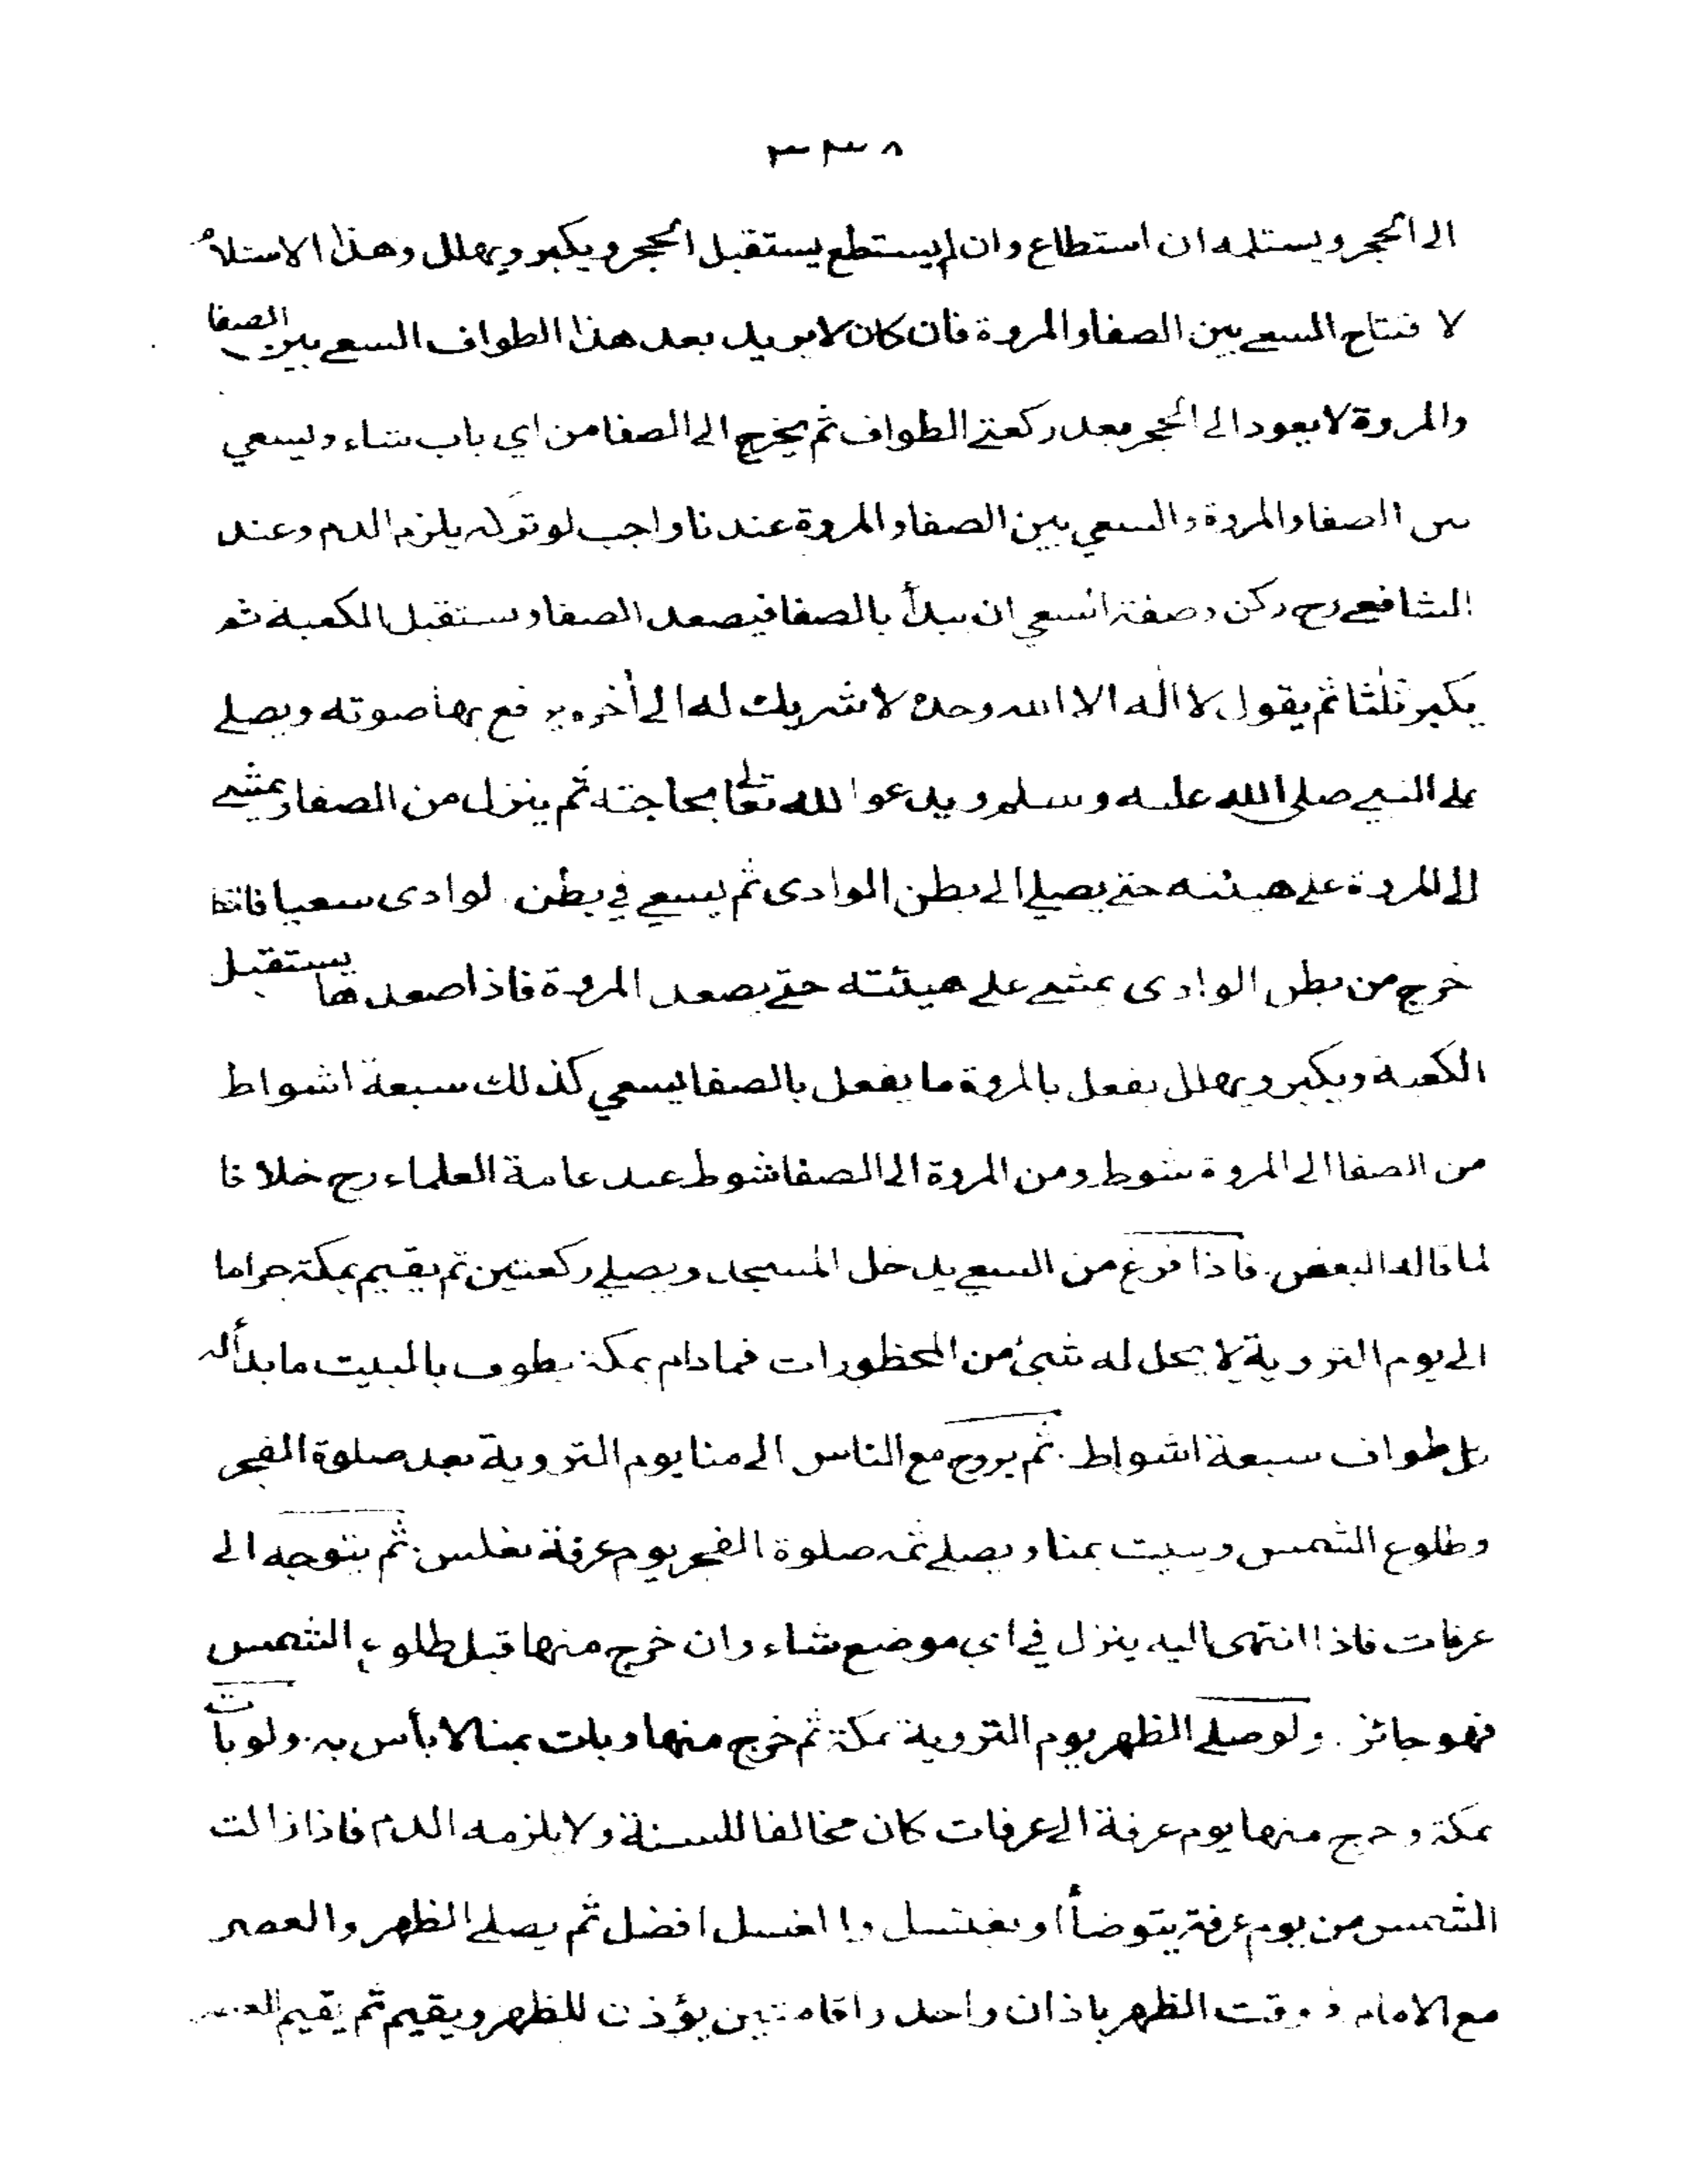 ٣٣٨
الى الحجر ويستلمه ان استطاع وان لم يستطع يستقبل الحجر ويكبر ويهلل وهذا الاستلام
لافتتاح السعے بين الصفا والمروة فان كان لا يريد بعد هذا الطواف السعے بين الصفا
والمروة لا يعود الى الحجر بعد ركعتے الطواف ثم يخرج الى الصفا من اي باب شاء ويسعي
بين الصفا والمروة والسعي بين الصفا والمروة عندنا واجب لو تركه يلزم الدم وعند
الشافعے رح ركن وصفة السعي ان يبدأ بالصفا فيصعد الصفا ويستقبل الكعبة ثم
يكبر ثلثا ثم يقول لا اله الا الله وحده لا شريك له الى أخره يرفع بها صوته ويصلے
على النبے صلى الله عليه وسلم ويدعوا لله تعالى بحاجته ثم ينزل من الصفا ويمشے
الى المروة علے هيئته حتے يصل الى بطن الوادى ثم يسعے في بطن الوادى سعيا فاذا
خرج من بطن الوادى يمشے علے هيئته حتے يصعد المروة فاذا صعدها يستقبل
الكعبة ويكبر ويهلل يفعل بالمروة ما يفعل بالصفا يسعي كذلك سبعة اشواط
من الصفا الى المروة شوط ومن المروة الى الصفا شوط عند عامة العلماء رح خلافا
لما قاله البعض. فاذا فرغ من السعے يدخل المسجد ويصلے ركعتين ثم يقيم بمكة حراما
الى يوم التروية لا يحل له شيئ من المحظورات فما دام بمكة يطوف بالبيت ما بدأله
كل طواف سبعة اشواط. ثم يروح مع الناس الى منا يوم التروية بعد صلوة الفجر
وطلوع الشمس ويبيت بمنا ويصلے ثمه صلوة الفجر يوم عرفة بغلس. ثم يتوجه الى
عرفات فاذا انتهى اليه ينزل في اي موضع شاء وان خرج منها قبل طلوع الشمس
فهو جائز. ولو صلے الظهر يوم التروية بمكة ثم خرج منها وبات بمنا لا بأس به. ولو بات
بمكة وخرج منها يوم عرفة الى عرفات كان مخالفا للسنة ولا يلزمه الدم فاذا زالت
الشمس من يوم عرفة يتوضأ او يغتسل والغسل افضل ثم يصلے الظهر والعصر
مع الامام وقت الظهر باذان واحد واقامتين يؤذن للظهر ويقيم ثم يقيم للعصر